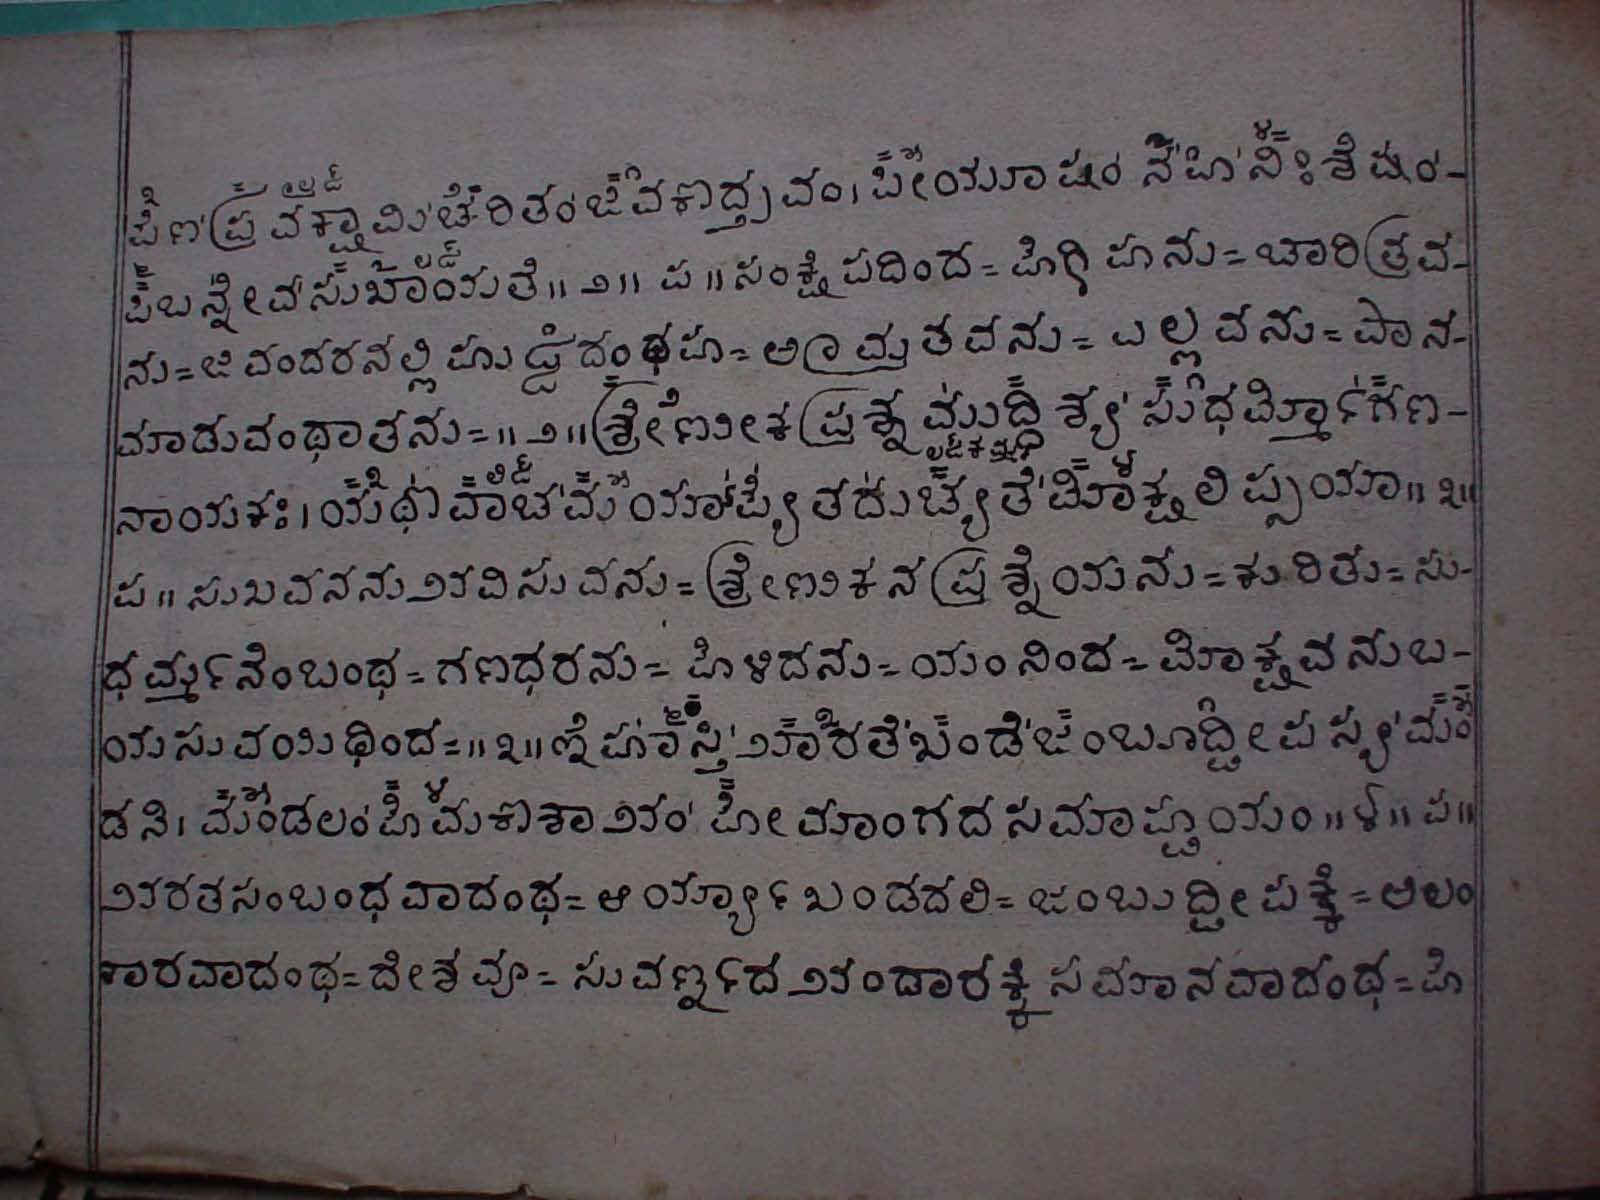 ಪೆಣ ಪ್ರವಕ್ಷ್ಯಾಮಿ ಚರಿತಂ ಜೀವಕೋದ್ಭವಂ। ಪೀಯೂಷಂ ನಹಿ ನಿಃಶೆಷಂ-
ಪಿಬನ್ನೇವ ಸುಖಾಯತೆ॥೨॥ ಪ॥ ಸಂಕ್ಷೆಪದಿಂದ= ಹಿಗ್ಗಿಹನು= ಚಾರಿತ್ರವ-
ನು= ಜಿವಂದರನಲ್ಲಿ ಹುಟ್ಟಿದಂಥಹ= ಅಮ್ರತವನು= ಎಲ್ಲವನು= ಪಾನ-
ಮಾಡುವಂಥಾತನು=॥೨॥ ಶ್ರೇಣೀಕಪ್ರಶ್ನಮುದ್ದಿಶ್ಯ ಸುಧರ್ಮ್ಮೋಗಣ-
ನಾಯಕಃ। ಯಥೋವಾಚ ಮಯಾಪ್ಯೇತದುಚ್ಯತೆ ಮೋಕ್ಷಲಿಪ್ಸಯಾ॥೩॥
ಪ॥ ಸುಖವನನುಭವಿಸುವನು= ಶ್ರೇಣಿಕನ ಪ್ರಶ್ನೆಯನು= ಕುರಿತು= ಸು-
ಧರ್ಮ್ಮನೆಂಬಂಥ= ಗಣಧರನು= ಹಿಳಿದನು= ಯಂನಿಂದ= ಮೋಕ್ಷವನುಬ-
ಯಸುವಯಿಥಿಂದ=॥೩॥ ಇಹಾಸ್ತಿ ಭಾರತೆ ಖಂಡೆ ಜಂಬೂದ್ವೀಪಸ್ಯ ಮಂ
ಡನೆ। ಮಂಡಲಂ ಹೆಮಕೋಶಾಭಂ ಹೇಮಾಂಗದಸಮಾಹ್ವಯಂ॥೪॥ ಪ॥
ಭರತಸಂಬಂಧವಾದಂಥ= ಆರ್ಯ್ಯಾ ಖಂಡದಲಿ= ಜಂಬುದ್ವೀಪಕ್ಕೆ= ಅಲಂ
ಕಾರವಾದಂಥ= ದೇಶವೂ= ಸುವರ್ಣ್ನದ ಭಂಡಾರಕ್ಕೆ ಸಮಾನವಾದಂಥ= ಹೆ